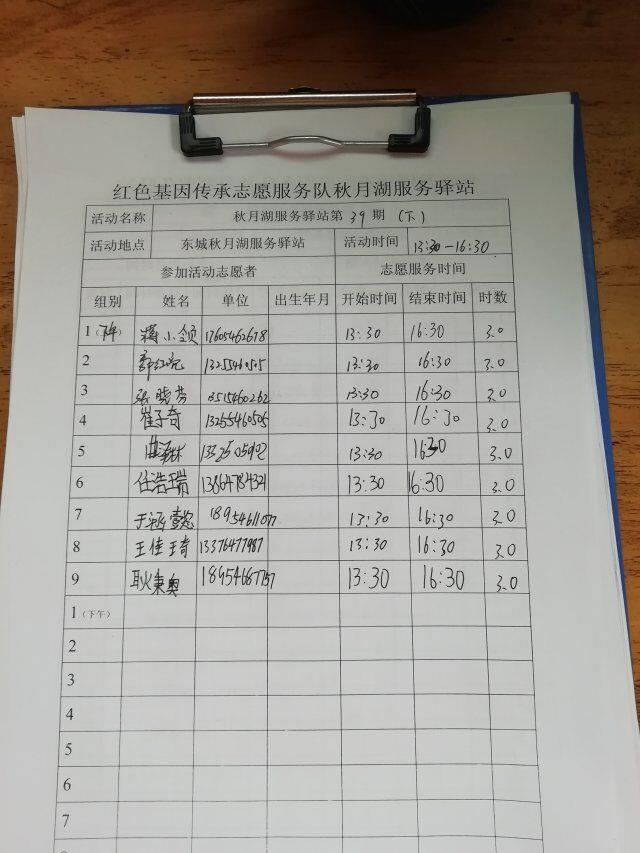 红色基因传承志愿服务队秋月湖服务驿站
活动名称 秋月湖服务驿站第 39 期 (下)
活动地点 东城秋月湖服务驿站 活动时间 13:30-16:30
参加活动志愿者 志愿服务时间
组别 姓名 单位 出生年月 开始时间 结束时间 时数
1 蒋小领 17605462678 13:30 16:30 3.0
2 13255460505 13:30 16:30 3.0
3 张晓芬 13515460262 13:30 16:30 3.0
4 崔子奇 13255460505 13:30 16:30 3.0
5 13:30 16:30 3.0
6 任浩瑞 13864784321 13:30 16:30 3.0
7 于涵懿 18954611077 13:30 16:30 3.0
8 王佳琦 13376477987 13:30 16:30 3.0
9 耿秉奥 18954667757 13:30 16:30 3.0
1 (下午)
2
3
4
5
6
7